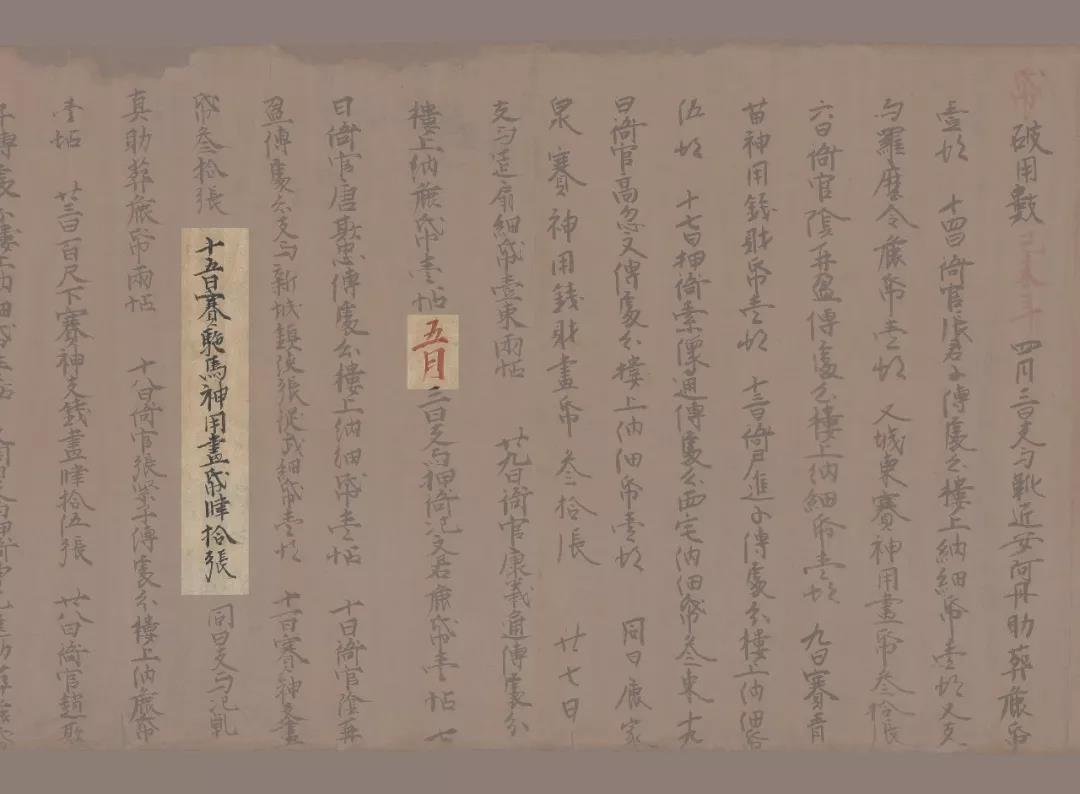 破用數 己未年 四月三日支与靴匠安阿丹助葬麁帋
壹帖 十四日衙官張君子傳處分樓上納細帋壹帖又支
与羅麼令麁帋壹帖 又城東賽神用畫帋叁拾張
六日衙官陰再盈傳處分樓上納細帋壹帖 九日賽青
苗神用錢財帋壹帖 十三日衙官尹進子傳處分樓上納細帋
伍帖 十七日押衙索漂通傳處分西宅納細帋叁束十九
日衙官高忽文傳處分樓上納細帋壹帖 同日鹿家
泉賽神用錢財畫帋叁拾張 廿七日
支与造扇細帋壹束兩帖 廿九日衙官康義通傳處分
樓上納麁帋壹帖 五月三日支与押衙氾文君麁帋壹帖 七
日衙官唐欺忠傳處分樓上納細帋壹帖 十日衙官陰再
盈傳處分支与新城鎮使張從武細帋壹帖 十一日賽神支畫
帋叁拾張 十五日賽駞馬神用畫帋肆拾張 同日支与氾乾
真助葬麁帋兩帖 十八日衙官張紫子傳處分樓上納麁帋
壹帖 廿三日百尺下賽神支錢畫肆拾伍張 廿八日衙官趙